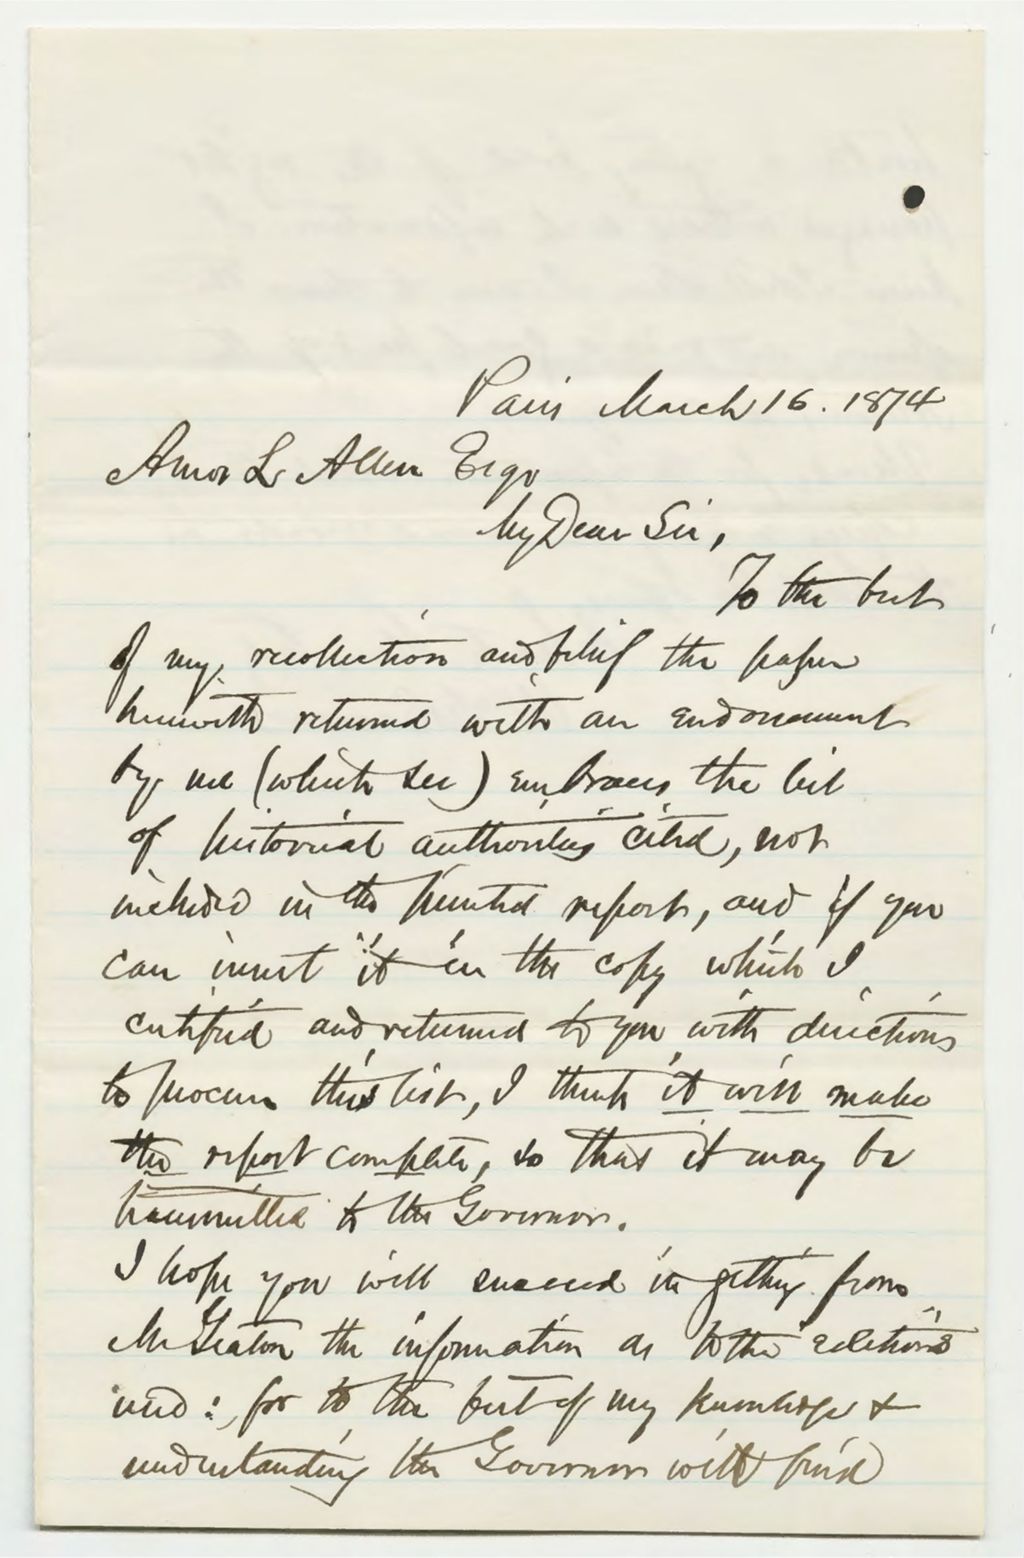 Paris March 16. 1874
Amos L. Allen Esqr
My Dear Sir,
To the best
of my, recollection and belief the paper
herewith returned with an endorsement
by me (which see) embraces the list
of historical authorities cited, not
included in the printed report, and if you
can insert it in the copy which I
certified and returned to you with directions
to procure this list, I think it will make
the report complete, so that it may be
transmitted to the Governor.
I hope you will succeed in getting from
Mr Seaton the information as to the editions
used: for to the best of my knowledge &
understanding the Governor will find